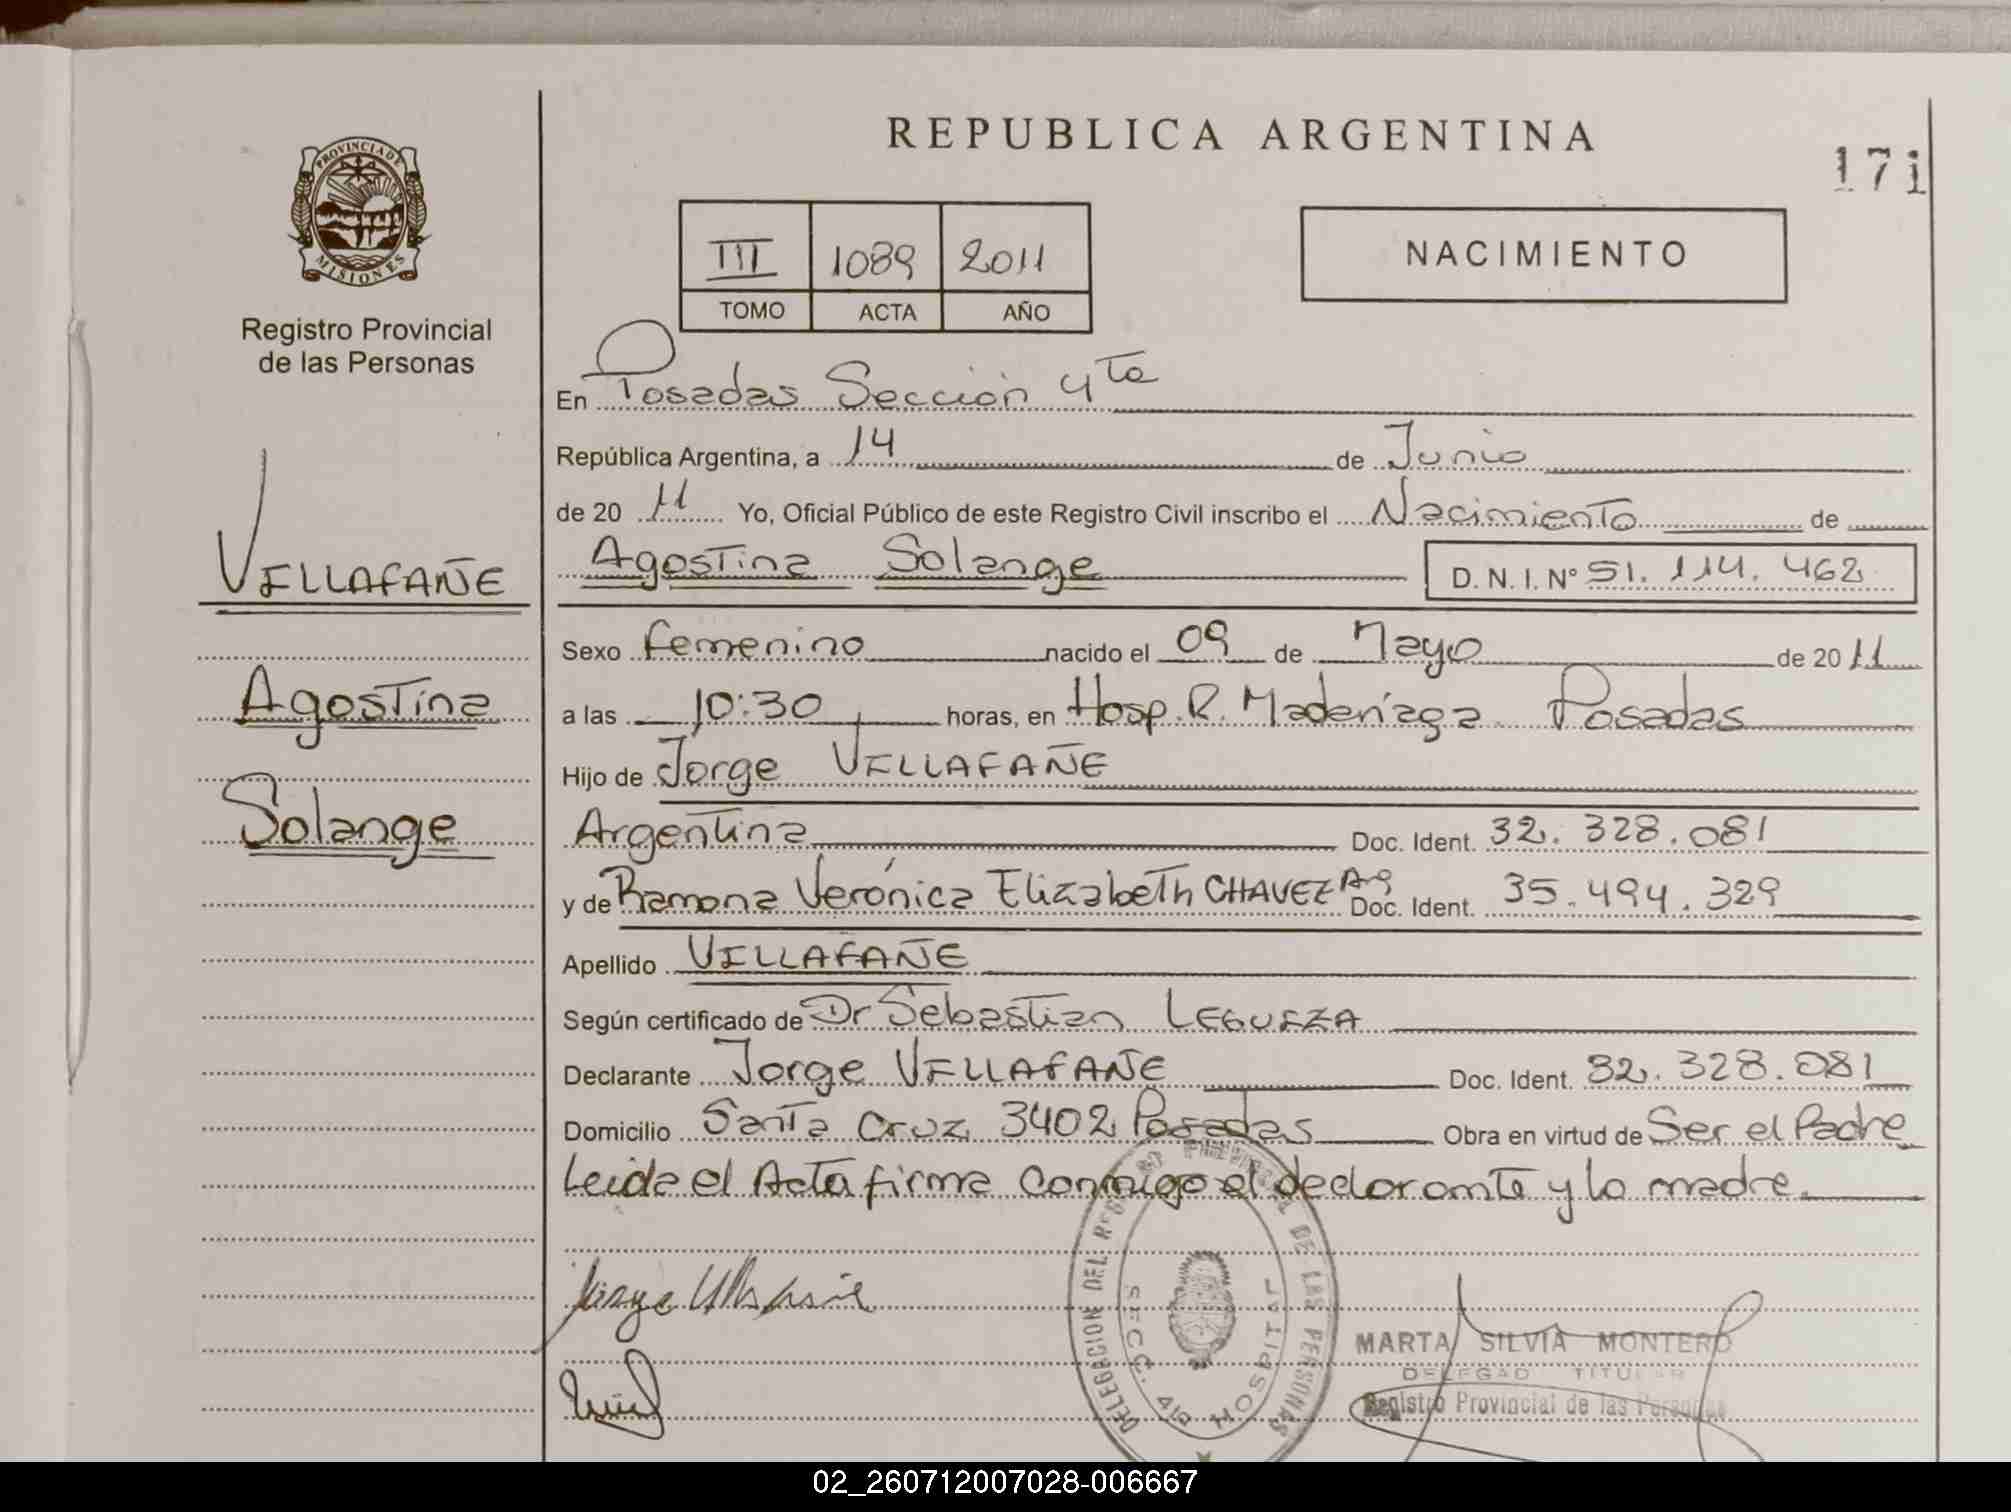 REPUBLICA ARGENTINA
171
PROVINCIA DE
MISIONES
Registro Provincial
de las Personas
III 1089 2011
TOMO ACTA AÑO
NACIMIENTO
VILLAFAÑE
Agostina
Solange
En Posadas Sección 4ta
República Argentina, a 14 de Junio
de 20 11 Yo, Oficial Público de este Registro Civil inscribo el Nacimiento de
Agostina Solange D. N. I. Nº 51.114.462
Sexo femenino nacido el 09 de Mayo de 20 11
a las 10:30 horas, en Hosp. R. Madariaga Posadas
Hijo de Jorge VILLAFAÑE
Argentina Doc. Ident. 32.328.081
y de Ramona Verónica Elizabeth CHAVEZ Arg Doc. Ident. 35.494.329
Apellido VILLAFAÑE
Según certificado de Dr Sebastian LEGUIZA
Declarante Jorge VILLAFAÑE Doc. Ident. 32.328.081
Domicilio Santa Cruz 3402 Posadas Obra en virtud de Ser el Padre
Leida el Acta firma conmigo el declarante y la madre.
DELEGACION DEL REG DE LAS PERSONAS
SECC. 4ta HOSPITAL
MARTA SILVIA MONTERO
DELEGADO TITULAR
Registro Provincial de las Personas
02_260712007028-006667